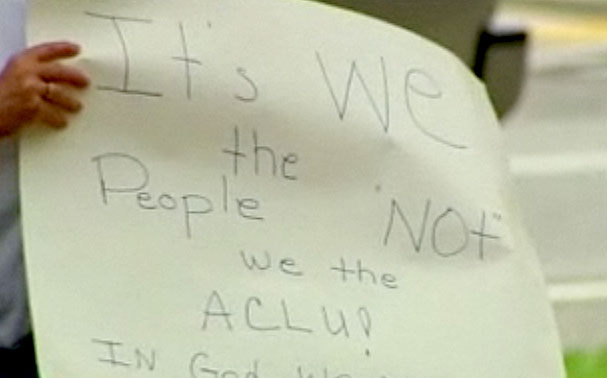 It's We
the
People 'NOt"
we the
ACLU!
IN God We